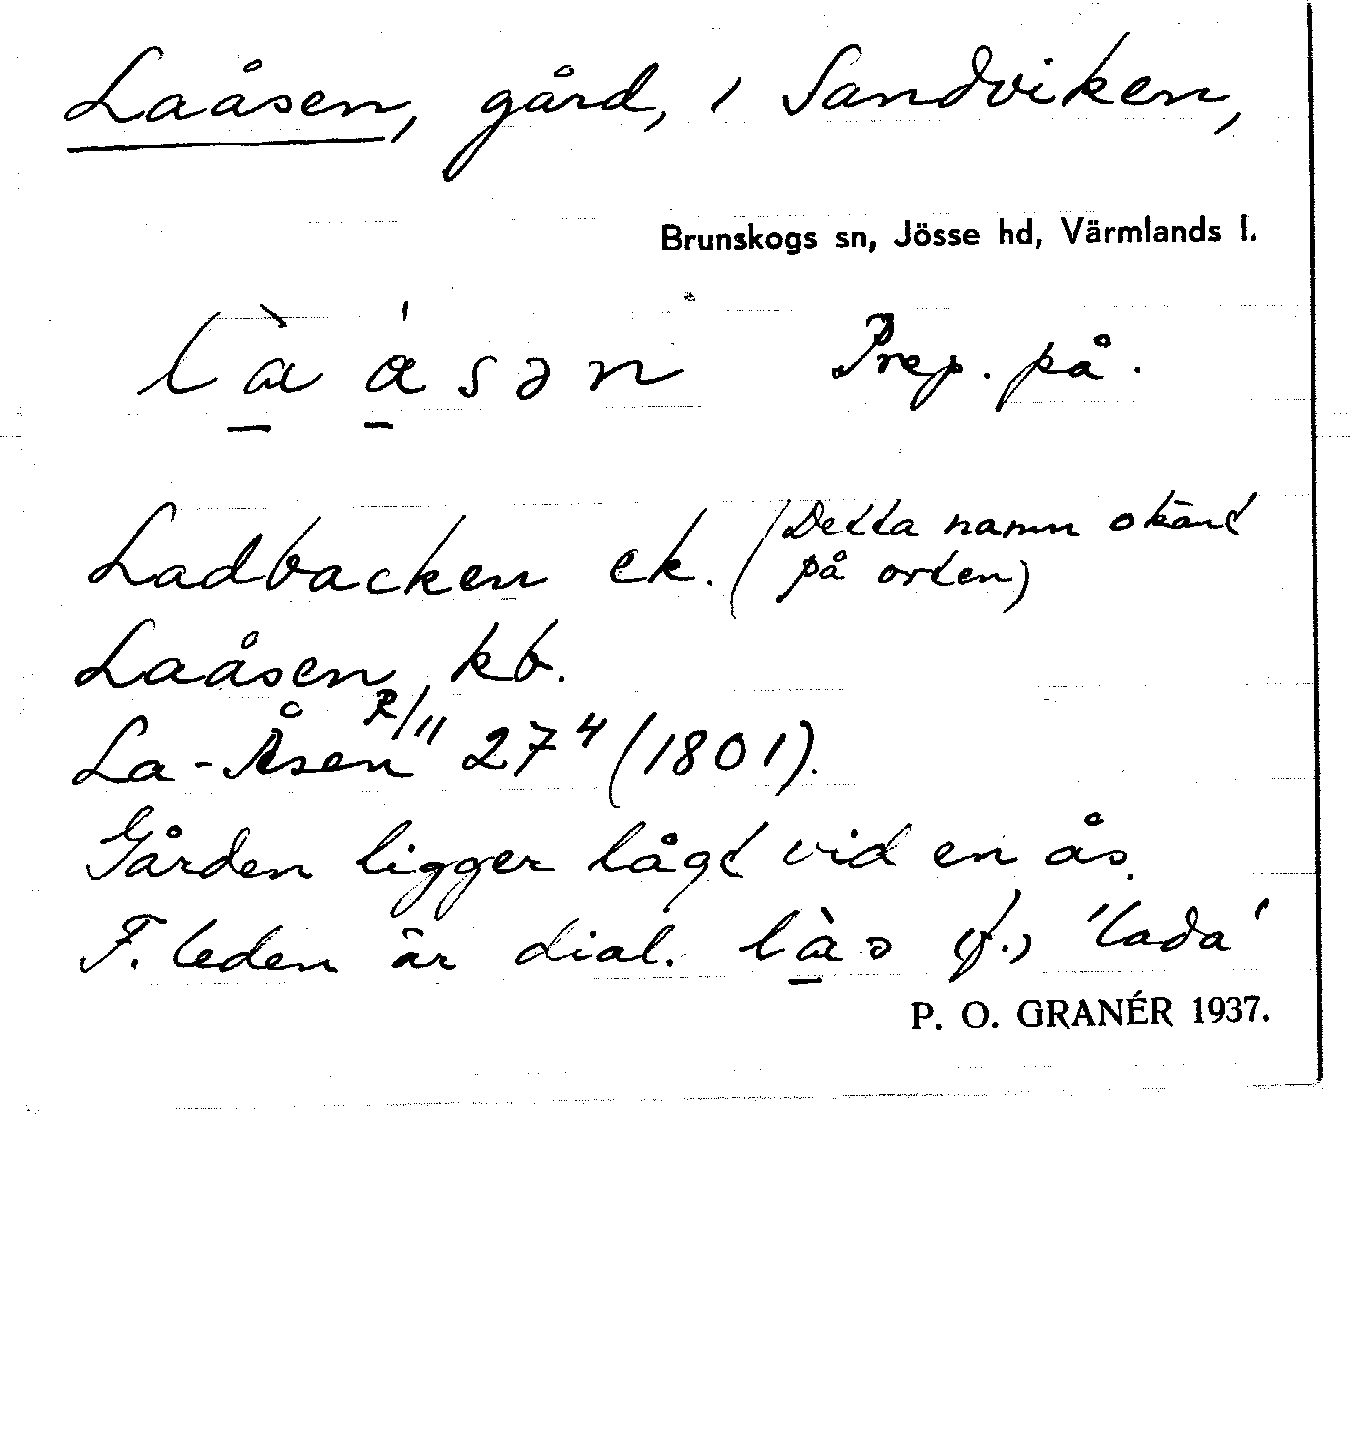 Laåsen, gård, i Sandviken,
Brunskogs sn, Jösse hd, Värmlands l.
Prep. på.
Ladbacken ek. (Detta namn okänt
på orten)
Laåsen kb.
La-Åsen R/11 27⁴ (1801).
Gården ligger lågt vid en ås.
F. leden är dial. làə f., 'lada'
P. O. GRANÉR 1937.